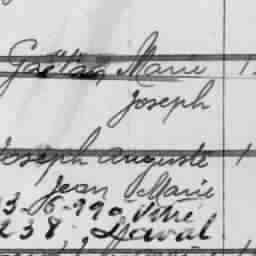 Gaëtan Marie 1
Joseph
Joseph Auguste 1
Jean Marie
13-6-990, Vitré
238, Laval